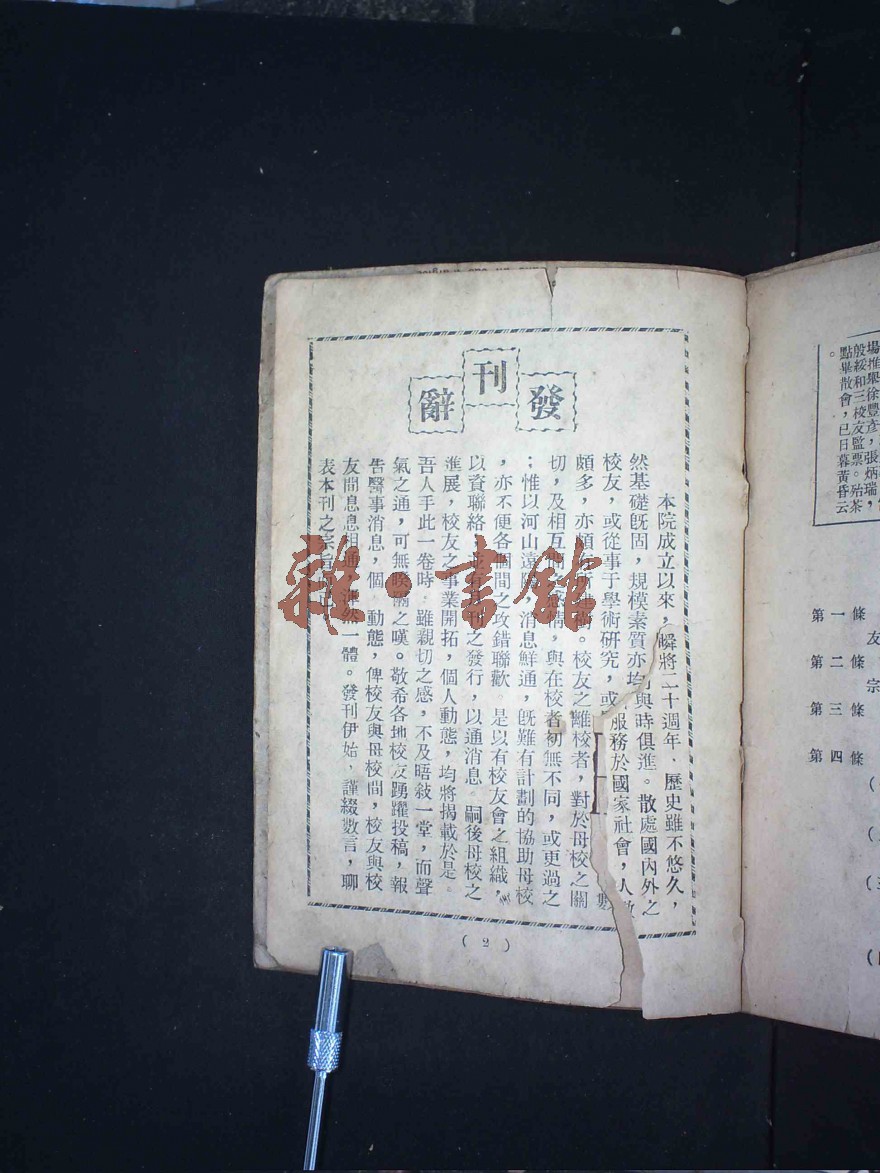 發刊辭
本院成立以來，瞬將二十週年．歷史雖不悠久，
然基礎旣固，規模素質亦均與時俱進。散處國內外之
校友，或從事于學術研究，或服務於國家社會，人數
頗多，亦頗有所建樹。校友之離校者，對於母校之關
切，及相互間之感情，與在校者初無不同，或更過之
；惟以河山遠隔，消息鮮通，旣難有計劃的協助母校
，亦不便各個間之攻錯聯歡。是以有校友會之組織，
以資聯絡，刊之發行，以通消息。嗣後母校之
進展，校友之事業開拓，個人動態，均將揭載於是．
吾人手此一卷時．雖親切之感，不及晤敍一堂，而聲
氣之通，可無暌隔之嘆。敬希各地校友踴躍投稿，報
告醫事消息，個動態，俾校友與母校間，校友與校
友間息息相通，渾然一體。發刊伊始，謹綴數言，聊
表本刊之宗旨
（2）
雜·書館
殷綏和三校友監票。殆茶
點畢散會，已日暮黃昏云
。
第一條
第二條
第三條
第四條